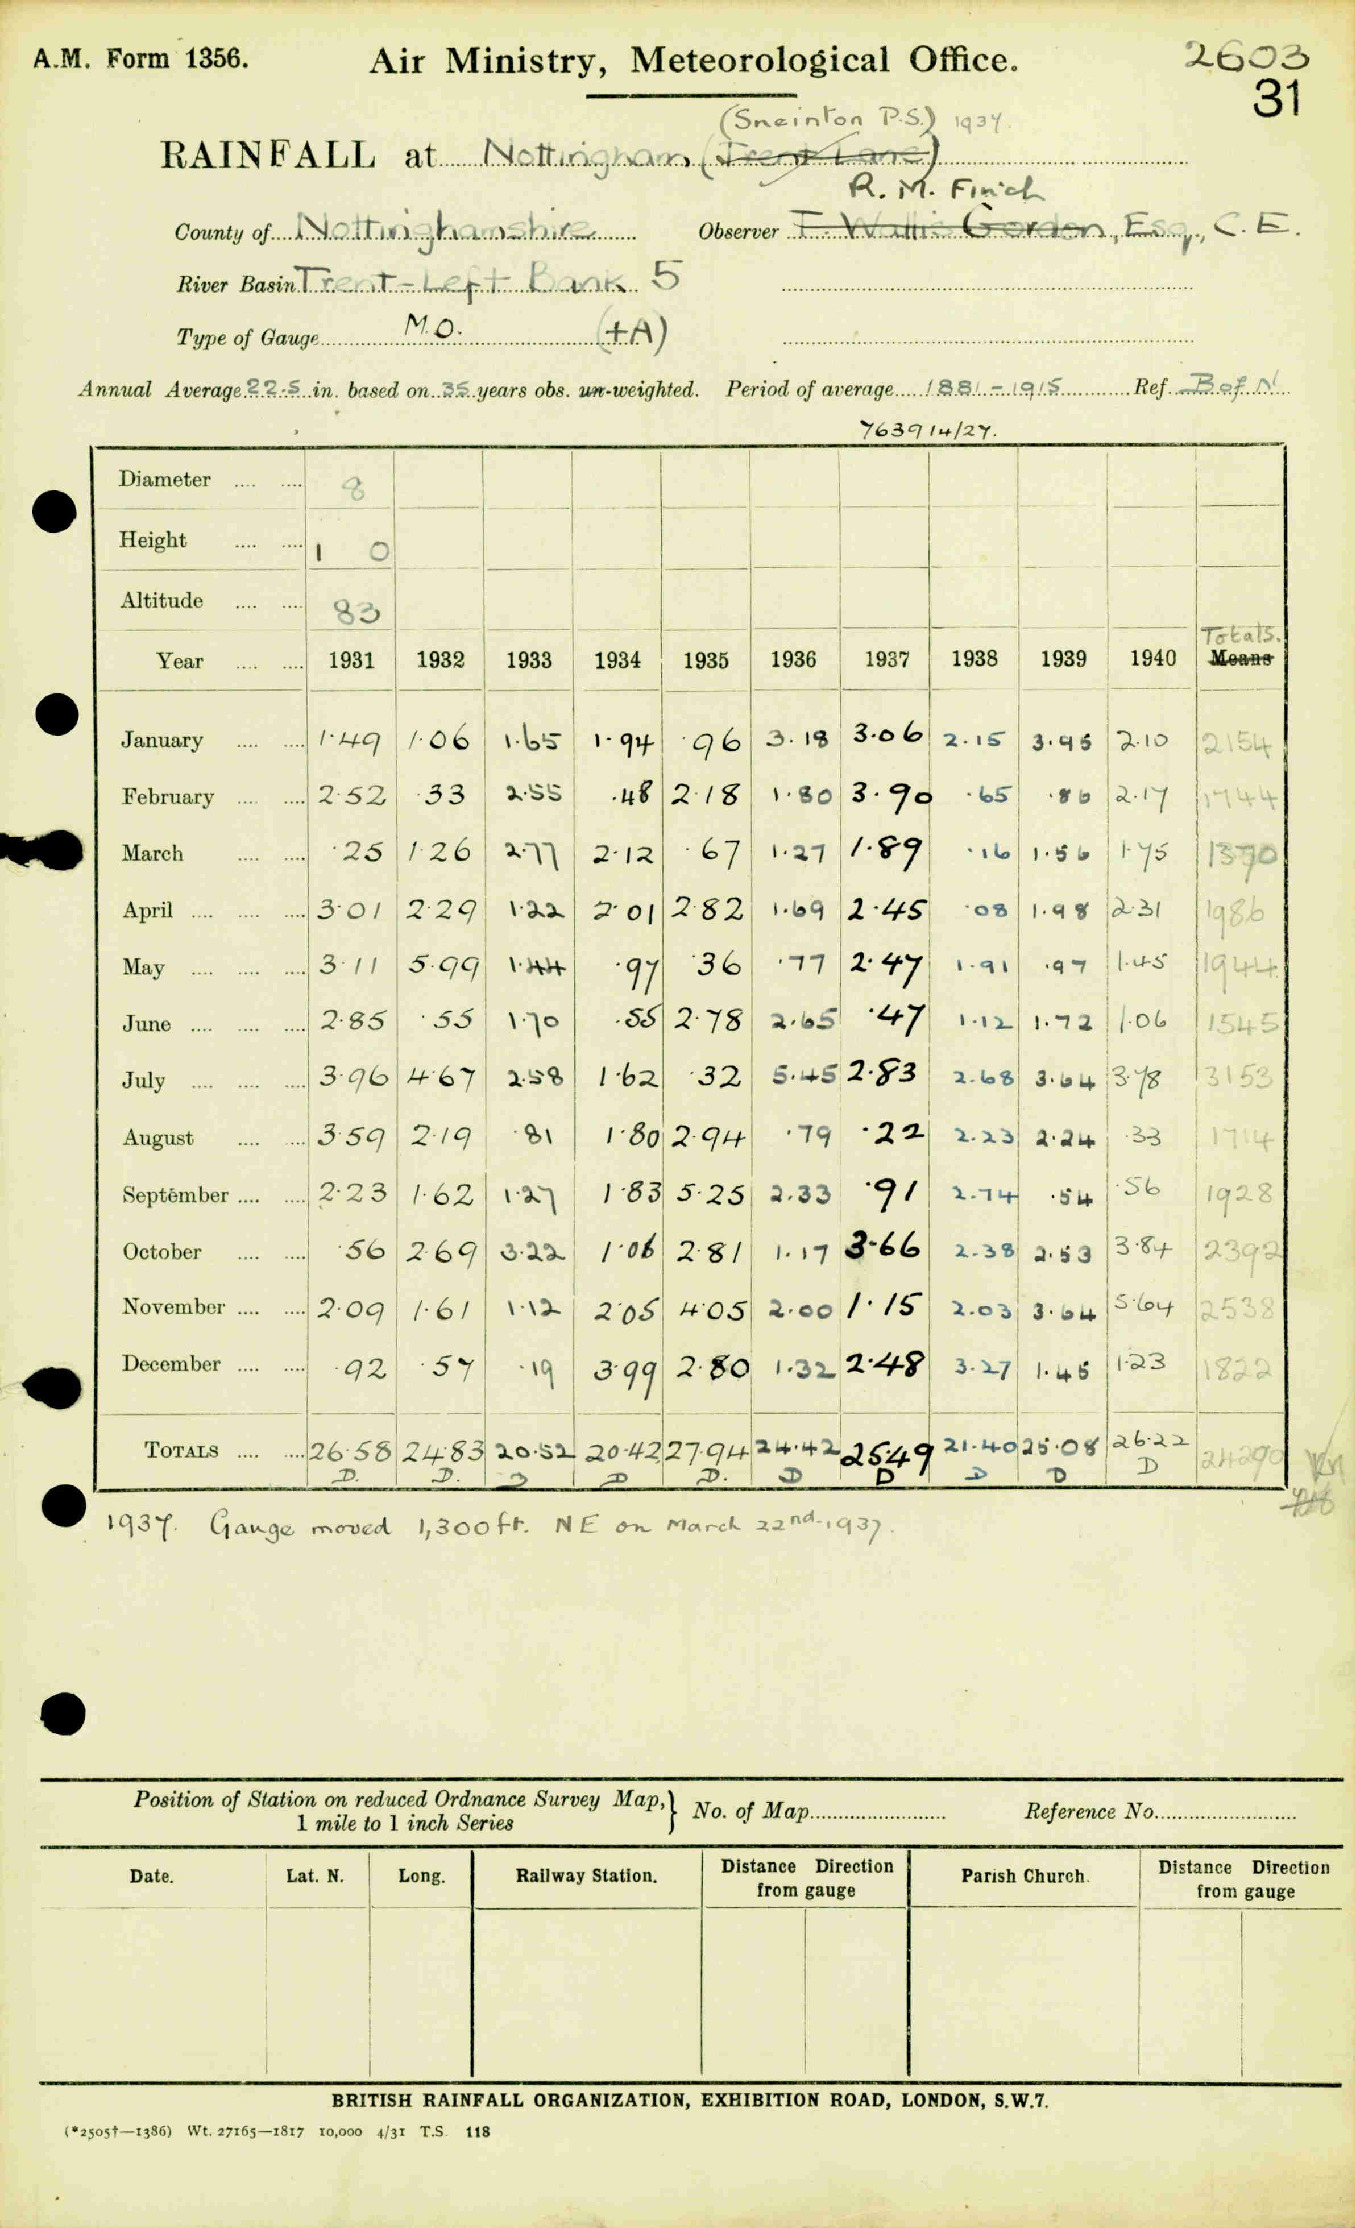 A.M. Form 1356. Air Ministry, Meteorological Office. 2603
31
(Sneinton P.S.) 1937.
RAINFALL at Nottingham (Trent Lane)
R. M. Finch
County of Nottinghamshire Observer F. Wallis Gordon, Esq., C.E.
River Basin Trent-Left Bank 5
Type of Gauge M.O. (+A)
Annual Average 22.5 in. based on 35 years obs. un-weighted. Period of average 1881-1915 Ref. B of N
763914/27.
Diameter .... .... 8
Height .... .... 1 0
Altitude .... .... 83
Totals.
Year .... .... 1931 1932 1933 1934 1935 1936 1937 1938 1939 1940 Means
January .... .... 1.49 1.06 1.65 1.94 .96 3.18 3.06 2.15 3.95 2.10 2154
February .... .... 2.52 .33 2.55 .48 2.18 1.80 3.90 .65 .86 2.17 1744
March .... .... .25 1.26 2.77 2.12 .67 1.27 1.89 .16 1.56 1.75 1370
April .... .... .... 3.01 2.29 1.22 2.01 2.82 1.69 2.45 .08 1.98 2.31 1986
May .... .... .... 3.11 5.99 1.44 .97 .36 .77 2.47 1.91 .97 1.45 1944
June .... .... .... 2.85 .55 1.70 .55 2.78 2.65 .47 1.12 1.72 1.06 1545
July .... .... .... 3.96 4.67 2.58 1.62 .32 5.45 2.83 2.68 3.64 3.78 3153
August .... .... 3.59 2.19 .81 1.80 2.94 .79 .22 2.23 2.24 .33 1714
September .... .... 2.23 1.62 1.27 1.83 5.25 2.33 .91 2.74 .54 .56 1928
October .... .... .56 2.69 3.22 1.06 2.81 1.17 3.66 2.38 2.53 3.84 2392
November .... .... 2.09 1.61 1.12 2.05 4.05 2.00 1.15 2.03 3.64 5.64 2538
December .... .... .92 .57 .19 3.99 2.80 1.32 2.48 3.27 1.45 1.23 1822
TOTALS .... .... 26.58 24.83 20.52 20.42 27.94 24.42 25.49 21.40 25.08 26.22 24290
D. D. D D D. D D D D D
1937. Gauge moved 1,300ft. NE on March 22nd. 1937.
Position of Station on reduced Ordnance Survey Map, } No. of Map Reference No.
1 mile to 1 inch Series
Date. Lat. N. Long. Railway Station. Distance Direction from gauge Parish Church. Distance Direction from gauge
BRITISH RAINFALL ORGANIZATION, EXHIBITION ROAD, LONDON, S.W.7.
(*2505†—1386) Wt. 27165—1817 10,000 4/31 T.S. 118